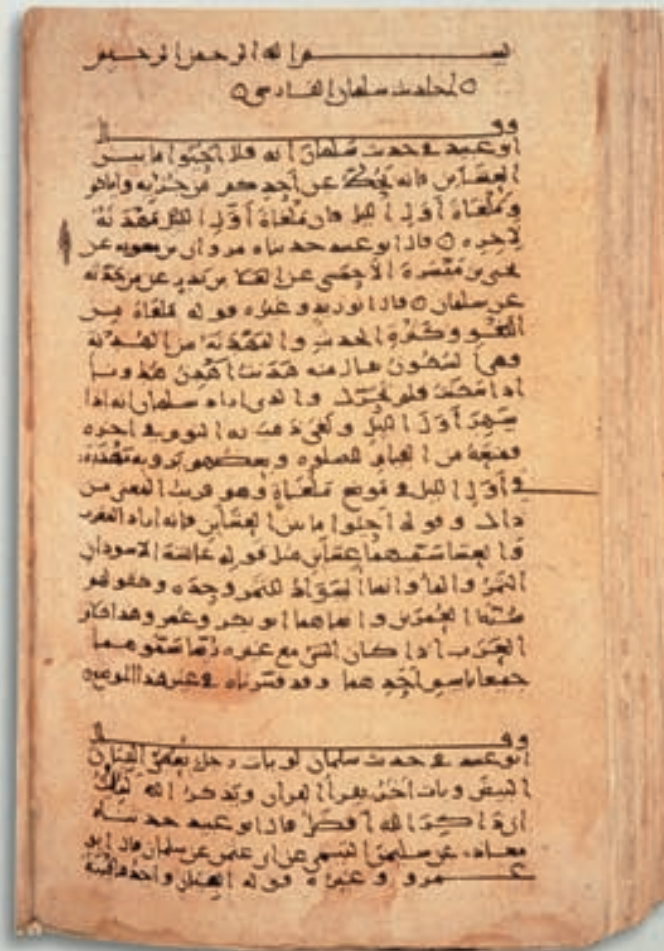 بسم الله الرحمن الرحيم
احاديث سلمان الفارسي
وقال
ابو عبيد في حديث سلمان انه قال احيوا ما بين
العشاين فانه يحط عن احدكم من جزئه واياكم
وملغاة اول الليل فان ملغاة اول الليل مهدنة
لاخره قال ابو عبيد حدثناه مروان بن معويه عن
يحيى بن ميسرة الاحمسي عن العلا بن بدر عن من حدثه
عن سلمان قال ابو زيد وغيره قوله ملغاة من
اللغو وكثرة الحديث والمهدنة من الهدنة
وهي السكون يقال منه هدنت اهدن هدونا
اذا سكنت فلم تتحرك والذي اراد سلمان انه اذا
سهر اول الليل ولغى ذهب به النوم في اخره
فمنعه من القيام للصلوه وبعضهم يرويه مهدنة
اول الليل في موضع ملغاة وهو قريب المعنى من
ذلك وقوله احيوا ما بين العشاين فانه اراد المغرب
والعشا فسماهما عشاين مثل قول عائشة الاسودان
التمر والما وانما السواد للتمر وحده وكقولهم
سنة العمرين وانما هما ابو بكر وعمر وهذا كلام
العرب اذا كان الشي مع غيره ربما سموهما
جميعا باسم احدهما وقد فسرناه في غير هذا الموضع
وقال
ابو عبيد في حديث سلمان لو بات رجل يعطي القيان
البيض وبات اخر يقرا القران ويذكر الله لرايت
ان ذاكر الله افضل قال ابو عبيد حدثناه
معاذ عن سليمن التيمي عن ابي عثمن عن سلمان قال ابو
عمرو وغيره قوله القيان واحدها قينة